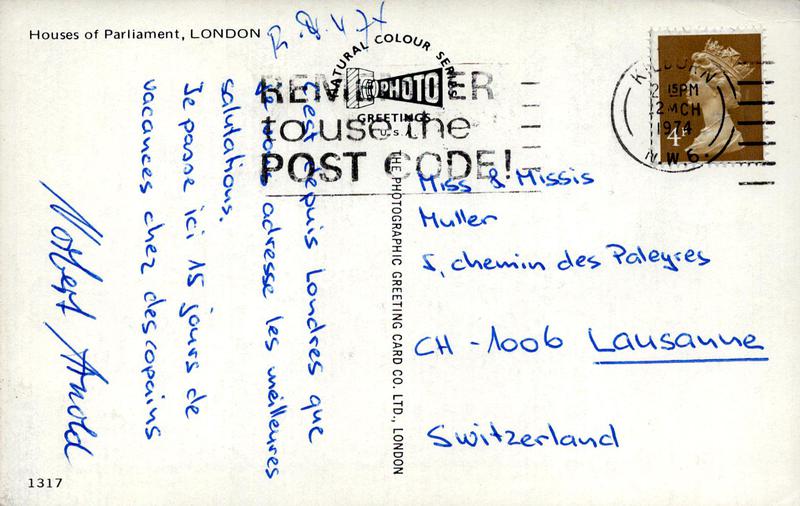 Houses of Parliament, LONDON
NATURAL COLOUR SERIES
PHOTO
GREETINGS
U.S.
REMEMBER
to use the
POST CODE!
KILBURN
2 15PM
2 MCH
1974
N.W.6.
4P
C'est depuis Londres que
je vous adresse les meilleures
salutations.
Je passe ici 15 jours de
vacances chez des copains
Norbert Arnold
THE PHOTOGRAPHIC GREETING CARD CO. LTD., LONDON
Miss & Missis
Muller
5, chemin des Paleyres
CH - 1006 Lausanne
Switzerland
1317